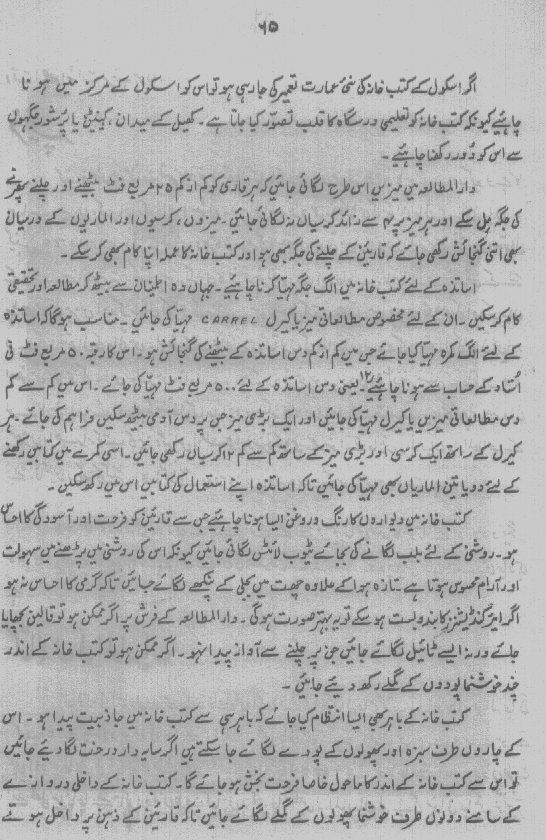 ۶۵
اگر اسکول کے کتب خانہ کی نئی عمارت تعمیر کی جا رہی ہو تو اس کو اسکول کے مرکز میں ہونا
چاہئیے کیونکہ کتب خانہ کو تعلیمی درسگاہ کا قلب تصوّر کیا جاتا ہے۔ کھیل کے میدان، کینٹین یا پُرشور جگہوں
سے اس کو دُور رکھنا چاہئیے۔
دارالمطالعہ میں میزیں اس طرح لگائی جائیں کہ ہر قاری کو کم از کم ۲۵ مربع فٹ بیٹھنے اور چلنے پھرنے
کی جگہ مل سکے اور ہر میز پر ۴ سے زائد کرسیاں نہ لگائی جائیں۔ میزوں، کرسیوں اور الماریوں کے درمیان
بھی اتنی گنجائش رکھی جائے کہ قارئین کے چلنے کی جگہ بھی ہو اور کتب خانہ کا عملہ اپنا کام بھی کر سکے۔
اساتذہ کے لئے کتب خانہ میں الگ جگہ مہیّا کرنا چاہئیے۔ جہاں وہ اطمینان سے بیٹھ کر مطالعہ اور تحقیقی
کام کر سکیں۔ ان کے لئے مخصوص مطالعاتی میز یا کیرل CARREL مہیّا کی جائیں۔ مناسب ہوگا کہ اساتذہ
کے لئے الگ کمرہ مہیّا کیا جائے جس میں کم از کم دس اساتذہ کے بیٹھنے کی گنجائش ہو۔ اس کا رقبہ ۵۰ مربع فٹ فی
اُستاد کے حساب سے ہونا چاہئیے۱۲ یعنی دس اساتذہ کے لئے ۵۰۰ مربع فٹ مہیّا کی جائے۔ اس میں کم سے کم
دس مطالعاتی میزیں یا کیرل مہیّا کی جائیں اور ایک بڑی میز جس پر دس آدمی بیٹھ سکیں فراہم کی جائے۔ ہر
کیرل کے ساتھ ایک کرسی اور بڑی میز کے ساتھ کم سے کم ۱۲ کرسیاں رکھی جائیں۔ اسی کمرے میں کتابیں رکھنے
کے لئے دو یا تین الماریاں بھی مہیّا کی جائیں تاکہ اساتذہ اپنے استعمال کی کتابیں اس میں رکھ سکیں۔
کتب خانہ میں دیواروں کا رنگ و روغن ایسا ہونا چاہئیے جس سے قارئین کو فرحت اور آسودگی کا احساس
ہو۔ روشنی کے لئے بلب لگانے کی بجائے ٹیوب لائٹس لگائی جائیں کیونکہ اس کی روشنی میں پڑھنے میں سہولت
اور آرام محسوس ہوتا ہے۔ تازہ ہوا کے علاوہ چھت میں بجلی کے پنکھے لگائے جائیں تاکہ گرمی کا احساس نہ ہو
اگر ایرکنڈیشنرز کا بندوبست ہو سکے تو یہ بہتر صورت ہوگی۔ دارالمطالعہ کے فرش پر اگر ممکن ہو تو قالین بچھایا
جائے ورنہ ایسے ٹائیل لگائے جائیں جن پر چلنے سے آواز پیدا نہ ہو۔ اگر ممکن ہو تو کتب خانہ کے اندر
چند خوشنما پودوں کے گملے رکھ دیئے جائیں۔
کتب خانہ کے باہر بھی ایسا انتظام کیا جائے کہ باہر سے ہی کتب خانہ میں جاذبیت پیدا ہو۔ اس
کے چاروں طرف سبزہ اور پھولوں کے پودے لگائے جا سکتے ہیں اگر سایہ دار درخت لگا دیئے جائیں
تو اس سے کتب خانہ کے اندر کا ماحول خاصا فرحت بخش ہو جائے گا۔ کتب خانہ کے داخلی دروازے
کے سامنے دونوں طرف خوشنما پھولوں کے گملے لگائے جائیں تاکہ قارئین کے ذہن پر داخل ہوتے